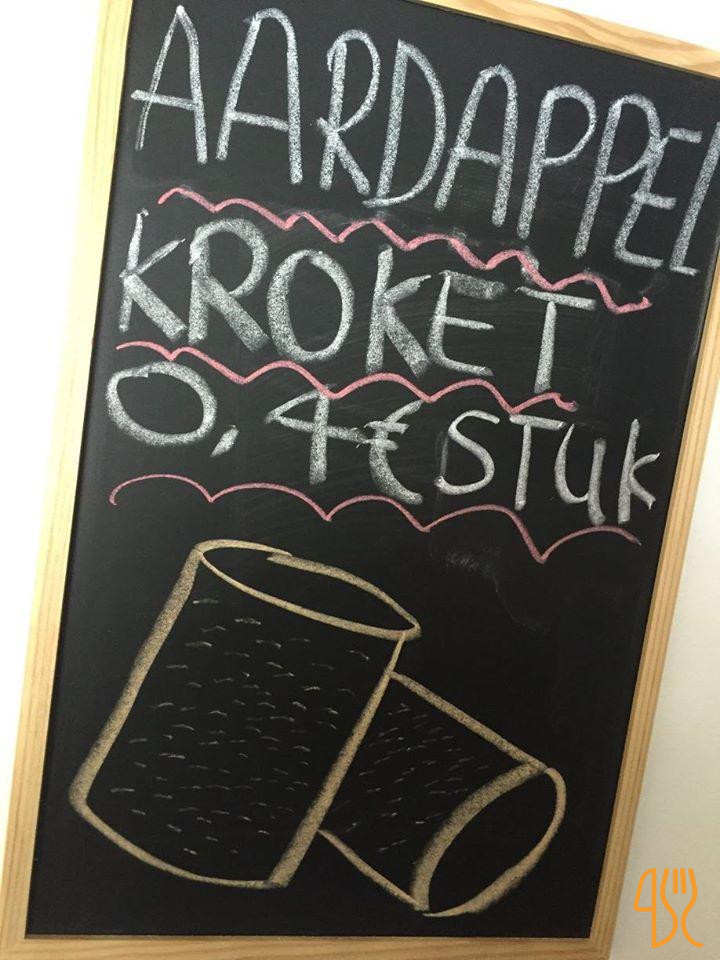 AARDAPPEL
KROKET
0,4€ STUK